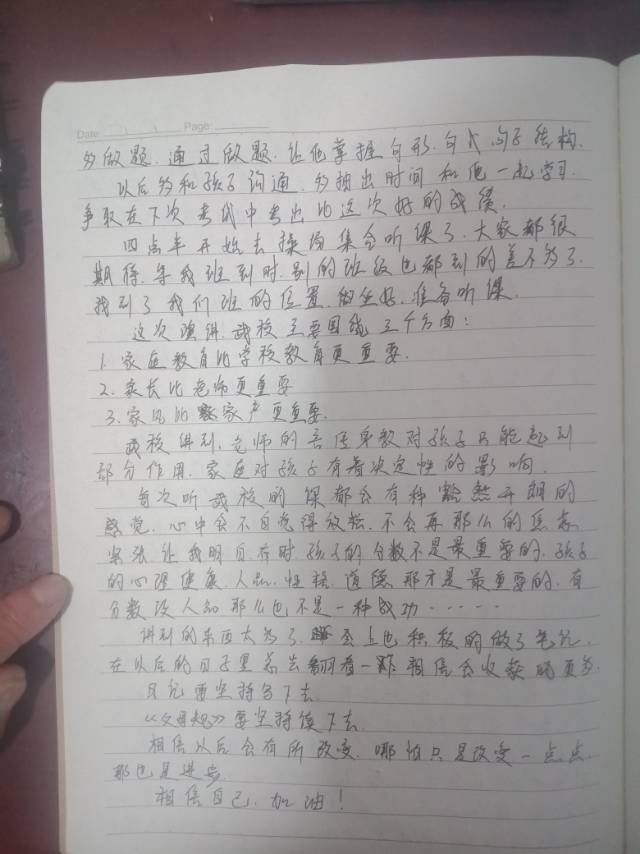 Date
Page
多做题.通过做题.让他掌握句形.句式.句子结构.
以后多和孩子沟通.多抽出时间和他一起学习.
争取在下次考试中考出比这次好的成绩.
四点半开始去操场集合听课了.大家都很
期待.等我班到时.别的班级也都到的差不多了.
找到了我们班的位置.做坐好.准备听课.
这次演讲.武校主要围绕三个方面:
1.家庭教育比学校教育更重要.
2.家长比老师更重要
3.家风比家产更重要.
武校讲到.老师的言传身教对孩子只能起到
部分作用.家庭对孩子有着决定性的影响.
每次听武校的课都会有种豁然开朗的
感觉.心中会不自觉得放松.不会再那么的焦虑
紧张让我明白有时孩子的分数不是最重要的.孩子
的心理健康.人品.性格.道德.那才是最重要的.有
分数没人品那么也不是一种成功······
讲到的东西太多了.会上也积极的做了笔记.
在以后的日子里若去翻看一下相信会收获的更多.
日记要坚持写下去.
《父母规》要坚持读下去.
相信以后会有所改变.哪怕只是改变一点点.
那也是进步.
相信自己.加油!